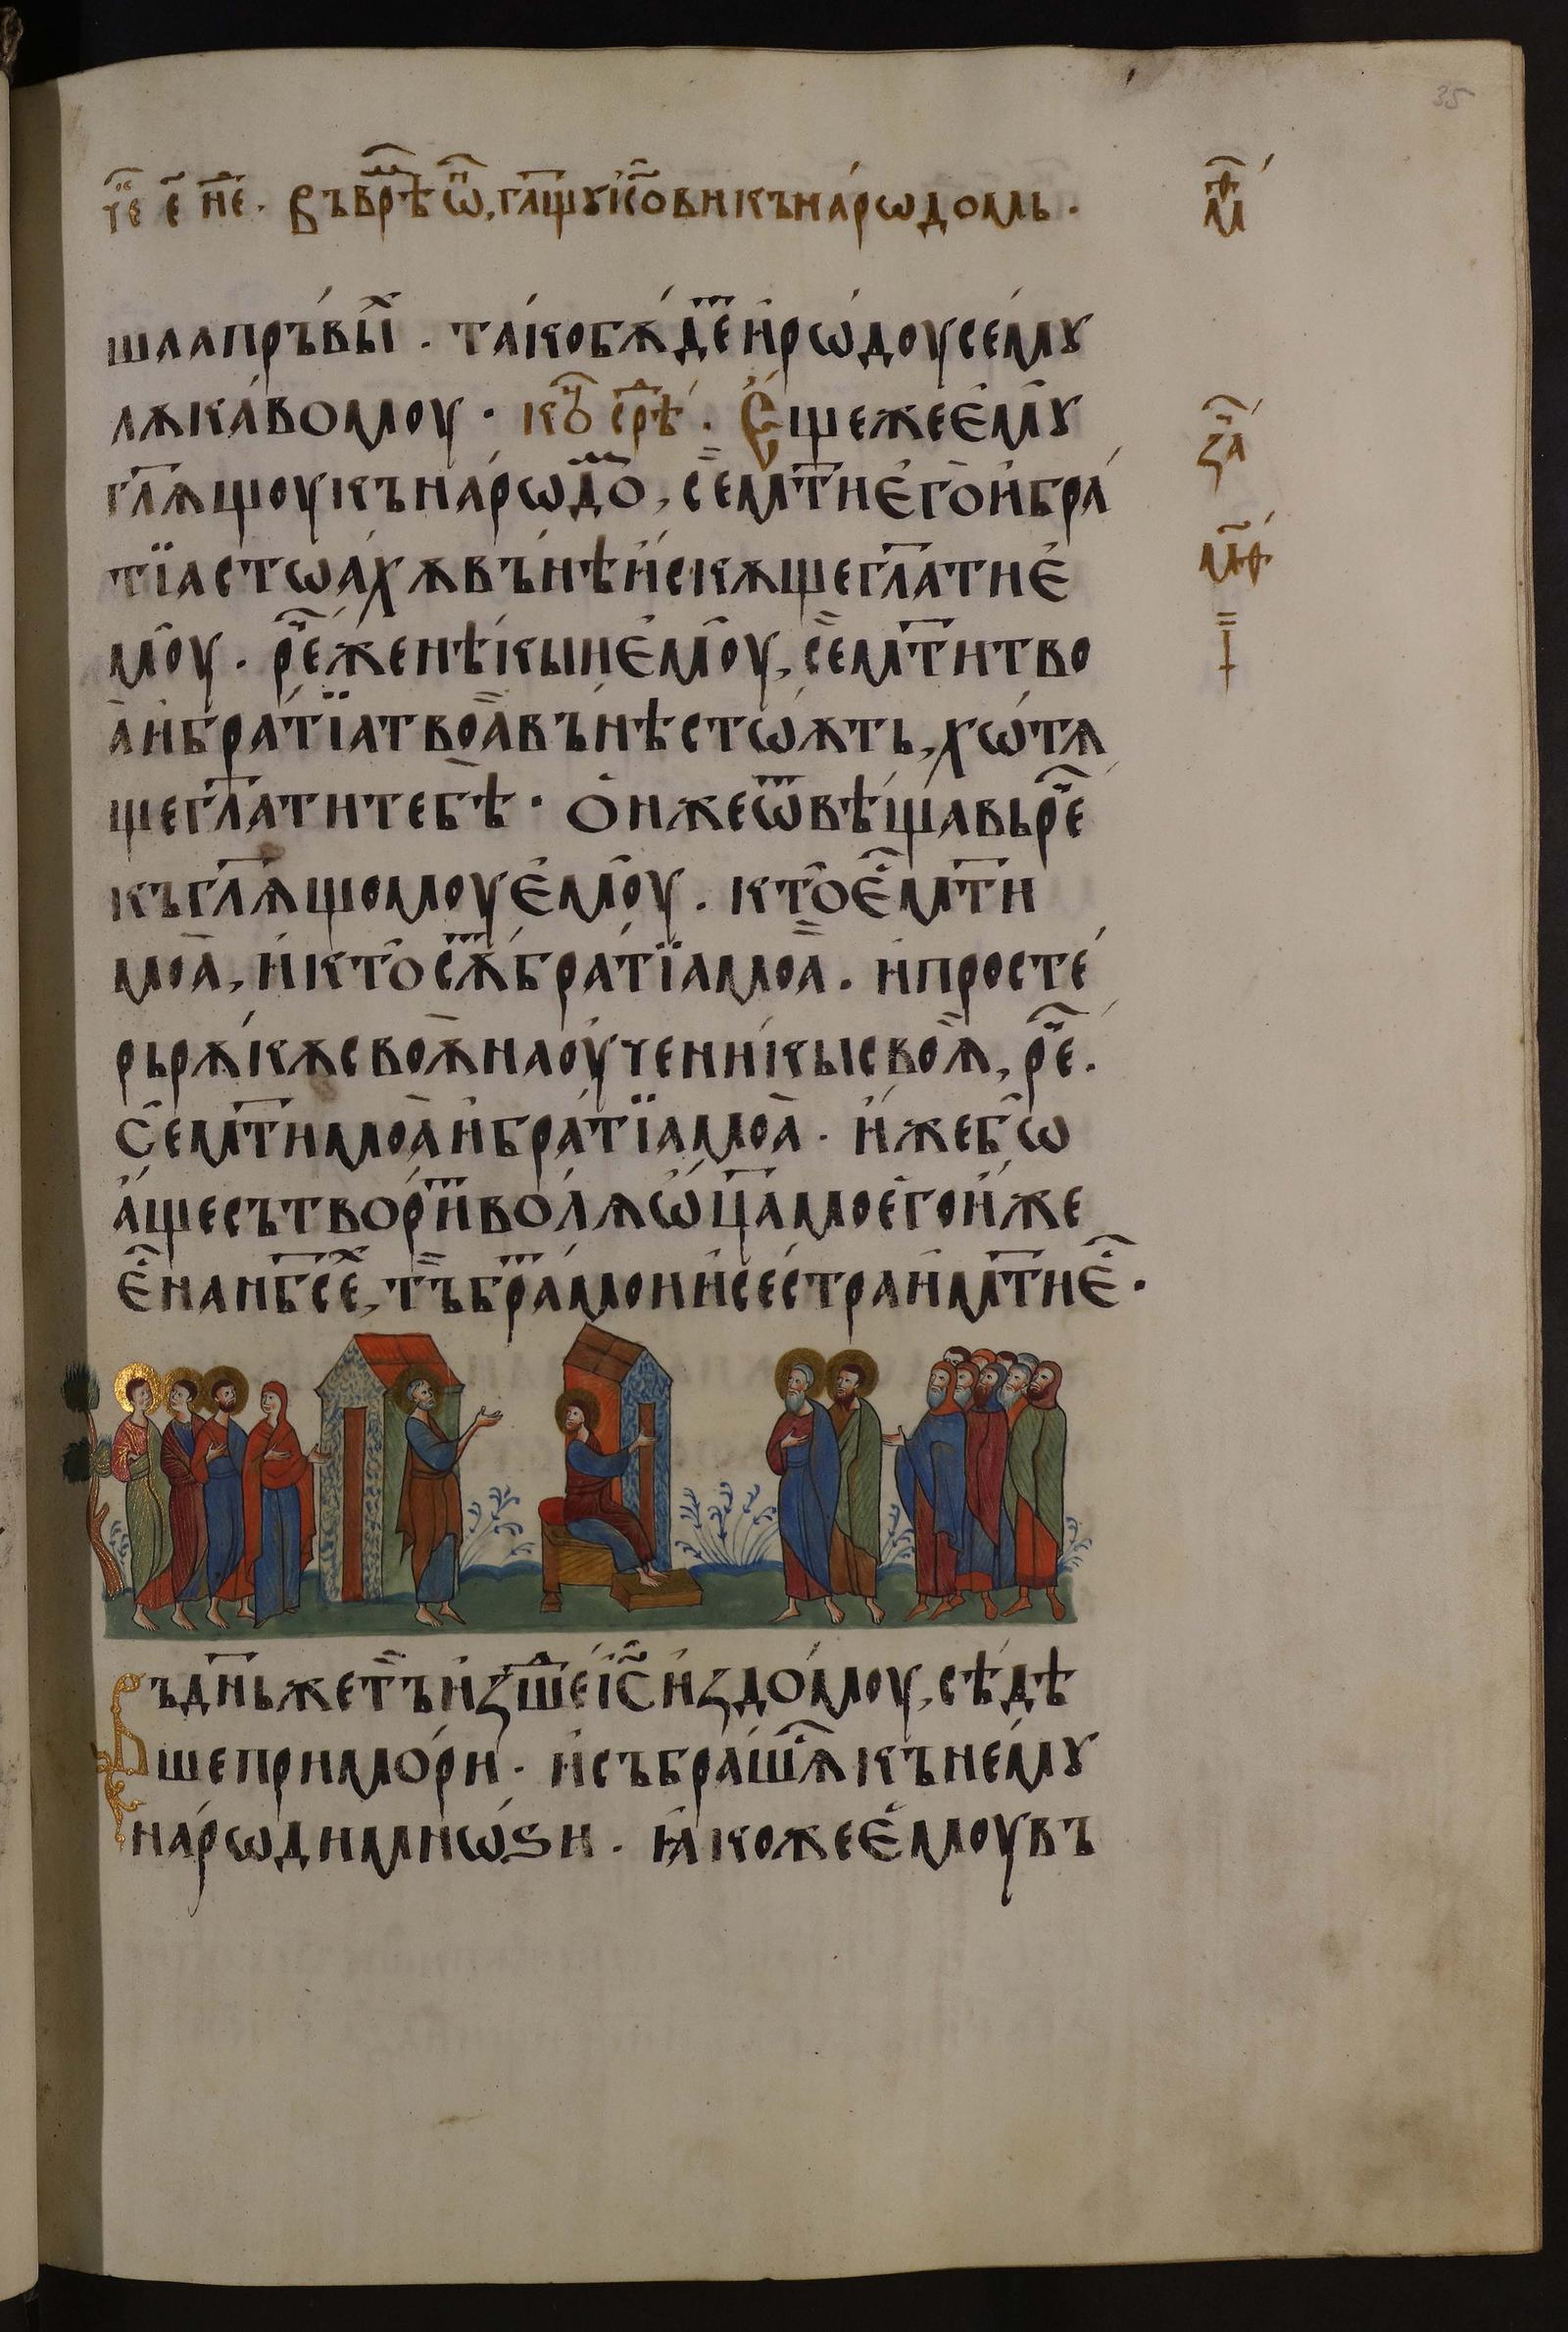 35
че҃ е҃ не҃. Въ врѣ҃ ѡ҃, гл҃ѧщꙋ іс҃ови къ нарѡдомь.
м҃
шаа пръвыⷯ. тако бѫдеⷮ и рѡдоу семꙋ
лѫкавомоу. коⷰ҇ срⷣѣ. Еще же емꙋ
гл҃ѧщоу къ нарѡдоⷨ, се мт҃и его и бра
за҃
тїа стоахѫ вънѣ искѫще гл҃ати е
мѳ҃
моу. реⷱ҇ же нѣкыи емоу, се мт҃и тво
а и братїа твоа вънѣ стѡѫть, хѡтѧ
ще гл҃ати тебѣ. Ѻн же ѿвѣщавь реⷱ҇
къ гл҃ѧщомоу емоу. кто еⷭ҇ мт҃и
моа, и кто сѫⷮ братїа моа. и просте
рь рѫкѫ своѫ на оученикы своѧ, реⷱ҇.
Се мт҃и моа и братїа моа. иже бѡ
аще сътвориⷮ волѧ ѡц҃а моего иже
еⷭ҇ на нб҃сеⷯ, тъ браⷮ мои и сестра и мт҃и еⷭ҇.
Въ дн҃ь же тъ изшеⷣ іс҃ из домоу, сѣдѣ
ше при мори. и събрашѧⷭ҇ къ немꙋ
нарѡди мнѡѕи. ꙗкоже емоу въ